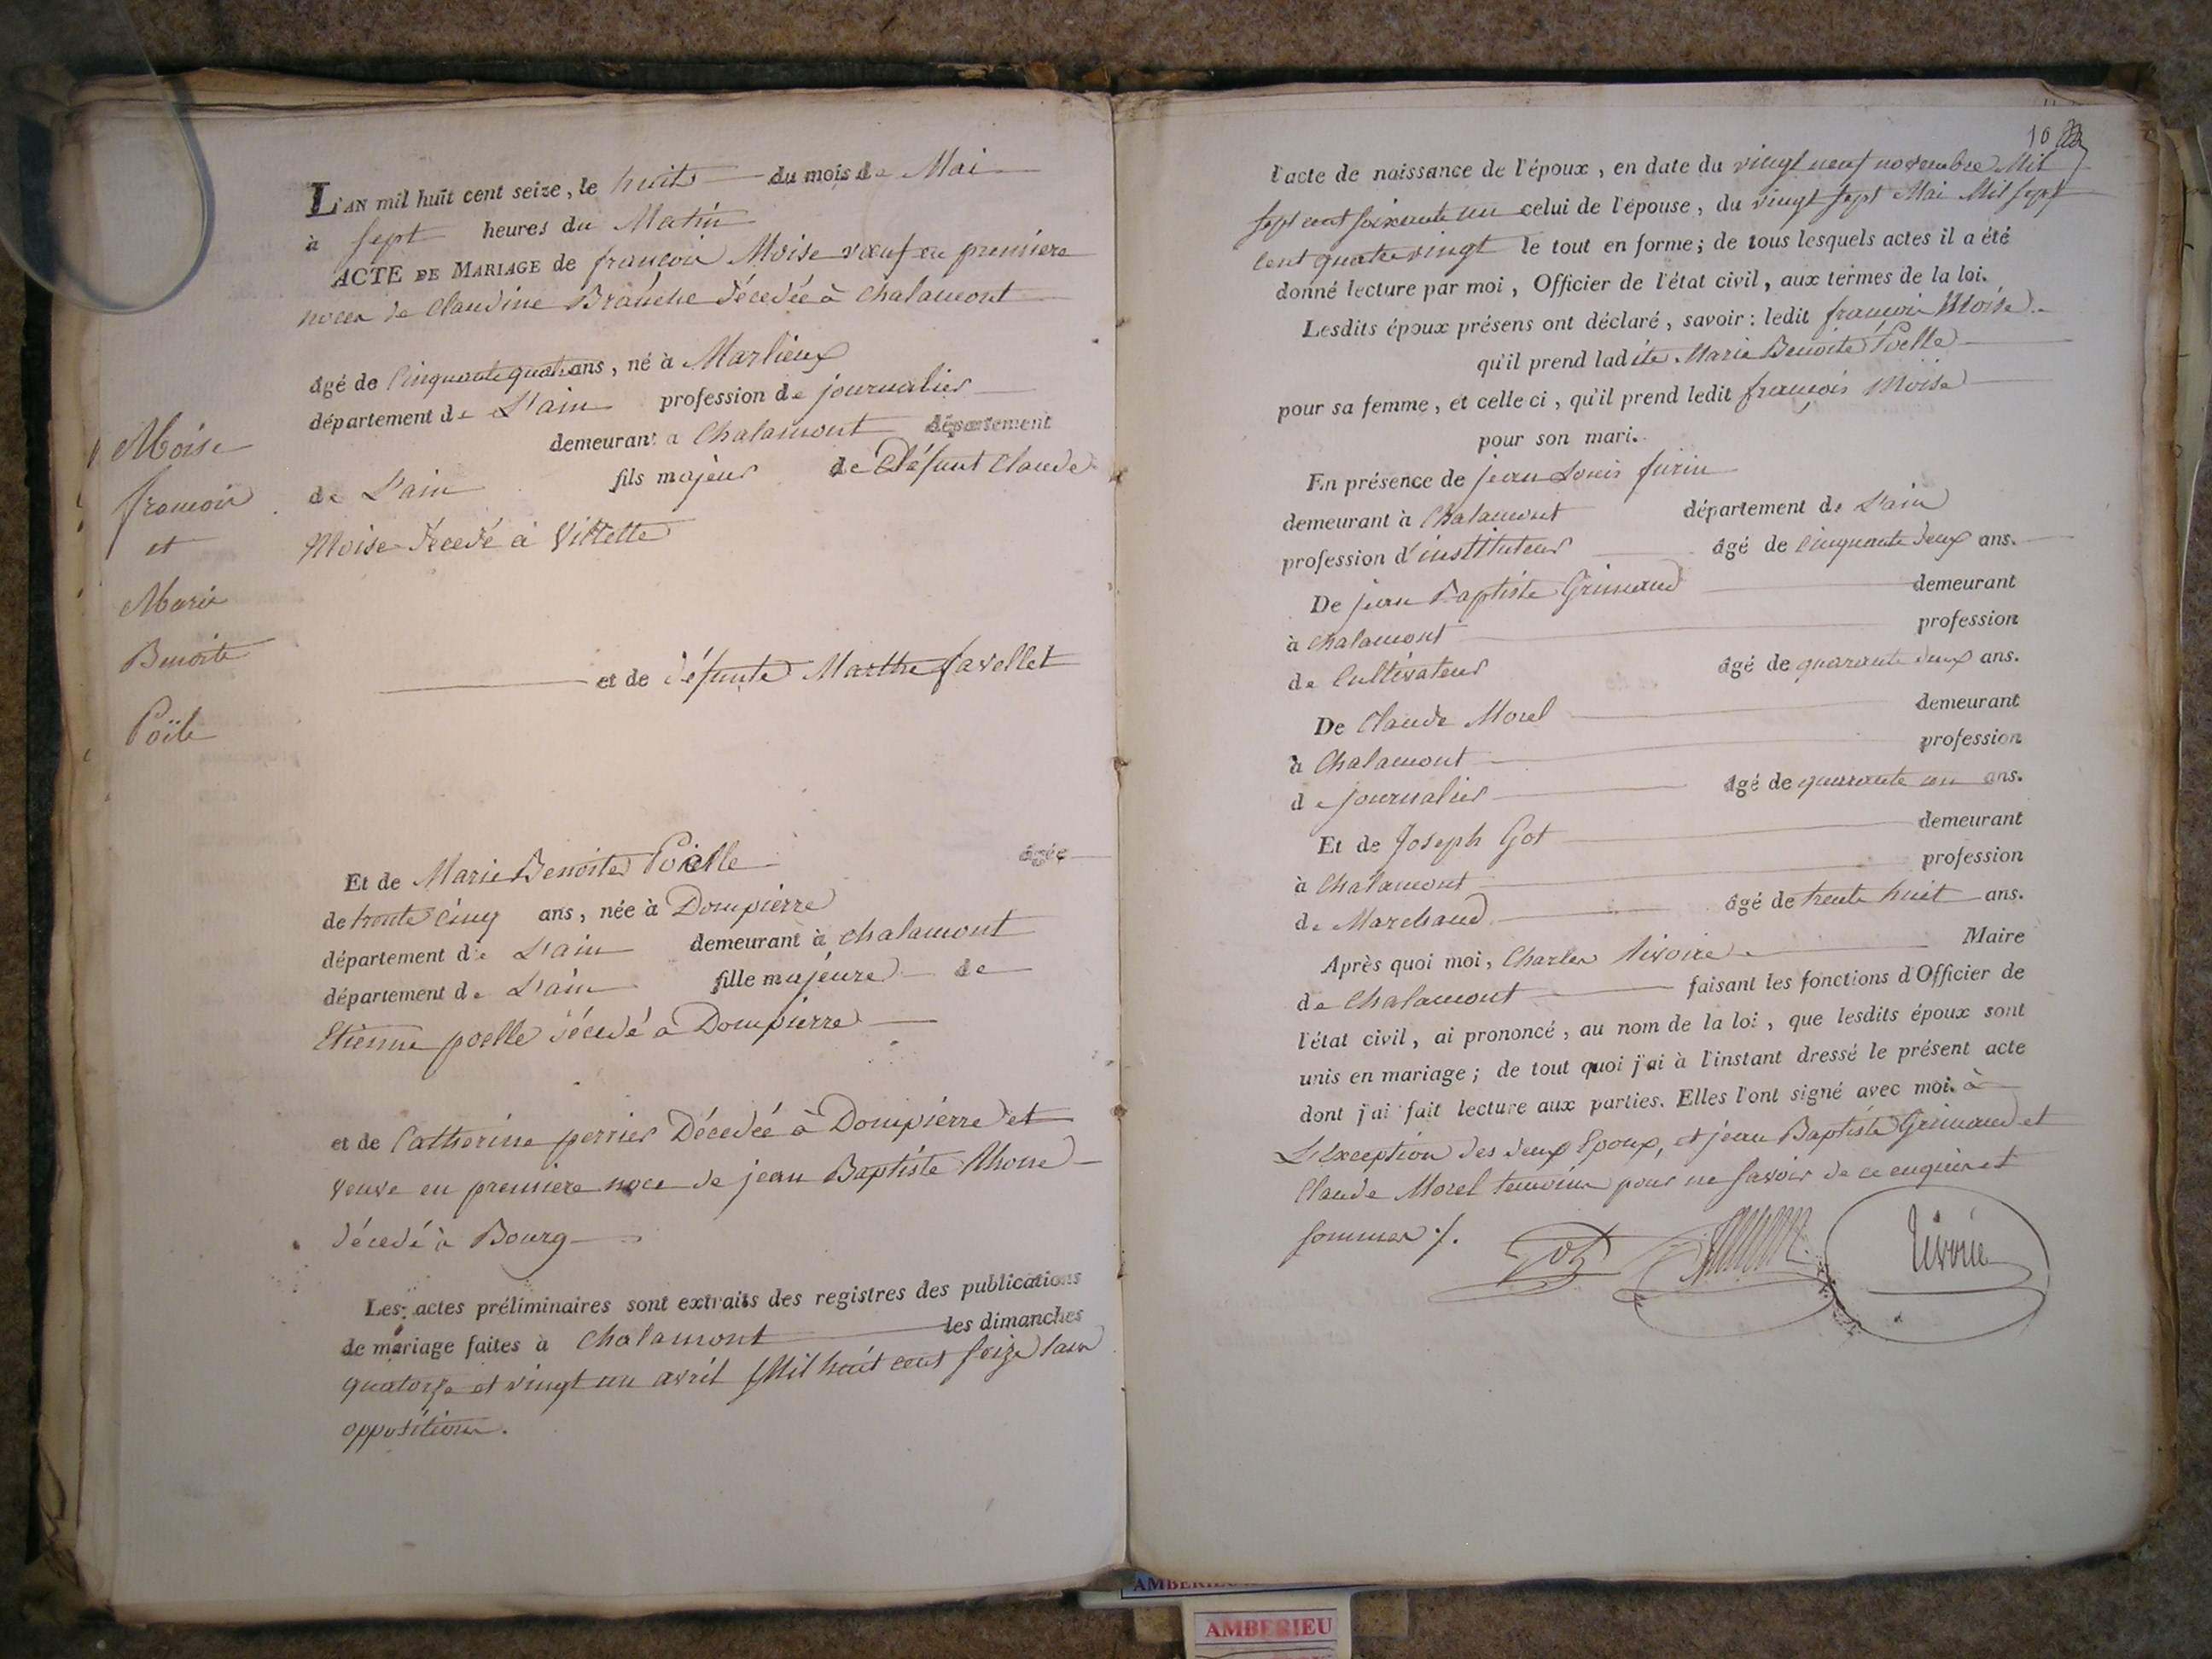 Moise
francois
et
Marie
Benoite
Poïle
L'AN mil huit cent seize, le huit du mois de Mai
à sept heures du Matin
ACTE DE MARIAGE de françois Moise veuf en premiere
noces de Claudine Branche décedée à chalamont
âgé de Cinquante quatre ans, né à Marlieux
département de L'ain profession de journalier
demeurant à Chalamont département
de L'ain fils majeur de Défunt Claude
Moise décedé à Villette
et de défunte Marthe favellet
Et de Marie Benoite Poielle âgée
de trente cinq ans, née à Dompierre
département de L'ain demeurant à chalamont
département de L'ain fille majeure de
Etienne poelle décedé à Dompierre
et de Catherine perrier Décedée à Dompierre et
veuve en premiere noce de jean Baptiste
décedé à Bourg
Les actes préliminaires sont extraits des registres des publications
de mariage faites à Chalamont les dimanches
quatorze et vingt un avril Mil huit cent seize sans
opposition.
10
l'acte de naissance de l'époux, en date du vingt neuf novembre Mil
sept cent soixante un celui de l'épouse, du vingt sept Mai Mil sept
cent quatre vingt le tout en forme; de tous lesquels actes il a été
donné lecture par moi, Officier de l'état civil, aux termes de la loi.
Lesdits époux présens ont déclaré, savoir: ledit françois Moise
qu'il prend ladite Marie Benoite Poelle
pour sa femme, et celle ci, qu'il prend ledit françois Moise
pour son mari.
En présence de jean Louis furin
demeurant à Chalamont département de L'ain
profession d'instituteur âgé de Cinquante deux ans.
De jean Baptiste Grimaud demeurant
à chalamont profession
de Cultivateur âgé de quarante deux ans.
De Claude Morel demeurant
à Chalamont profession
de journalier âgé de quarante un ans.
Et de Joseph Got demeurant
à Chalamont profession
de Marchand âgé de trente huit ans.
Après quoi moi, Charles Rivoire Maire
de Chalamont faisant les fonctions d'Officier de
l'état civil, ai prononcé, au nom de la loi, que lesdits époux sont
unis en mariage; de tout quoi j'ai à l'instant dressé le présent acte
dont j'ai fait lecture aux parties. Elles l'ont signé avec moi. à
L'Exception des deux Epoux, et jean Baptiste Grimaud et
Claude Morel temoins pour ne savoir de ce enquis et
sommes ./.
Got Rivoire
AMBERIEU
AMBERIEU